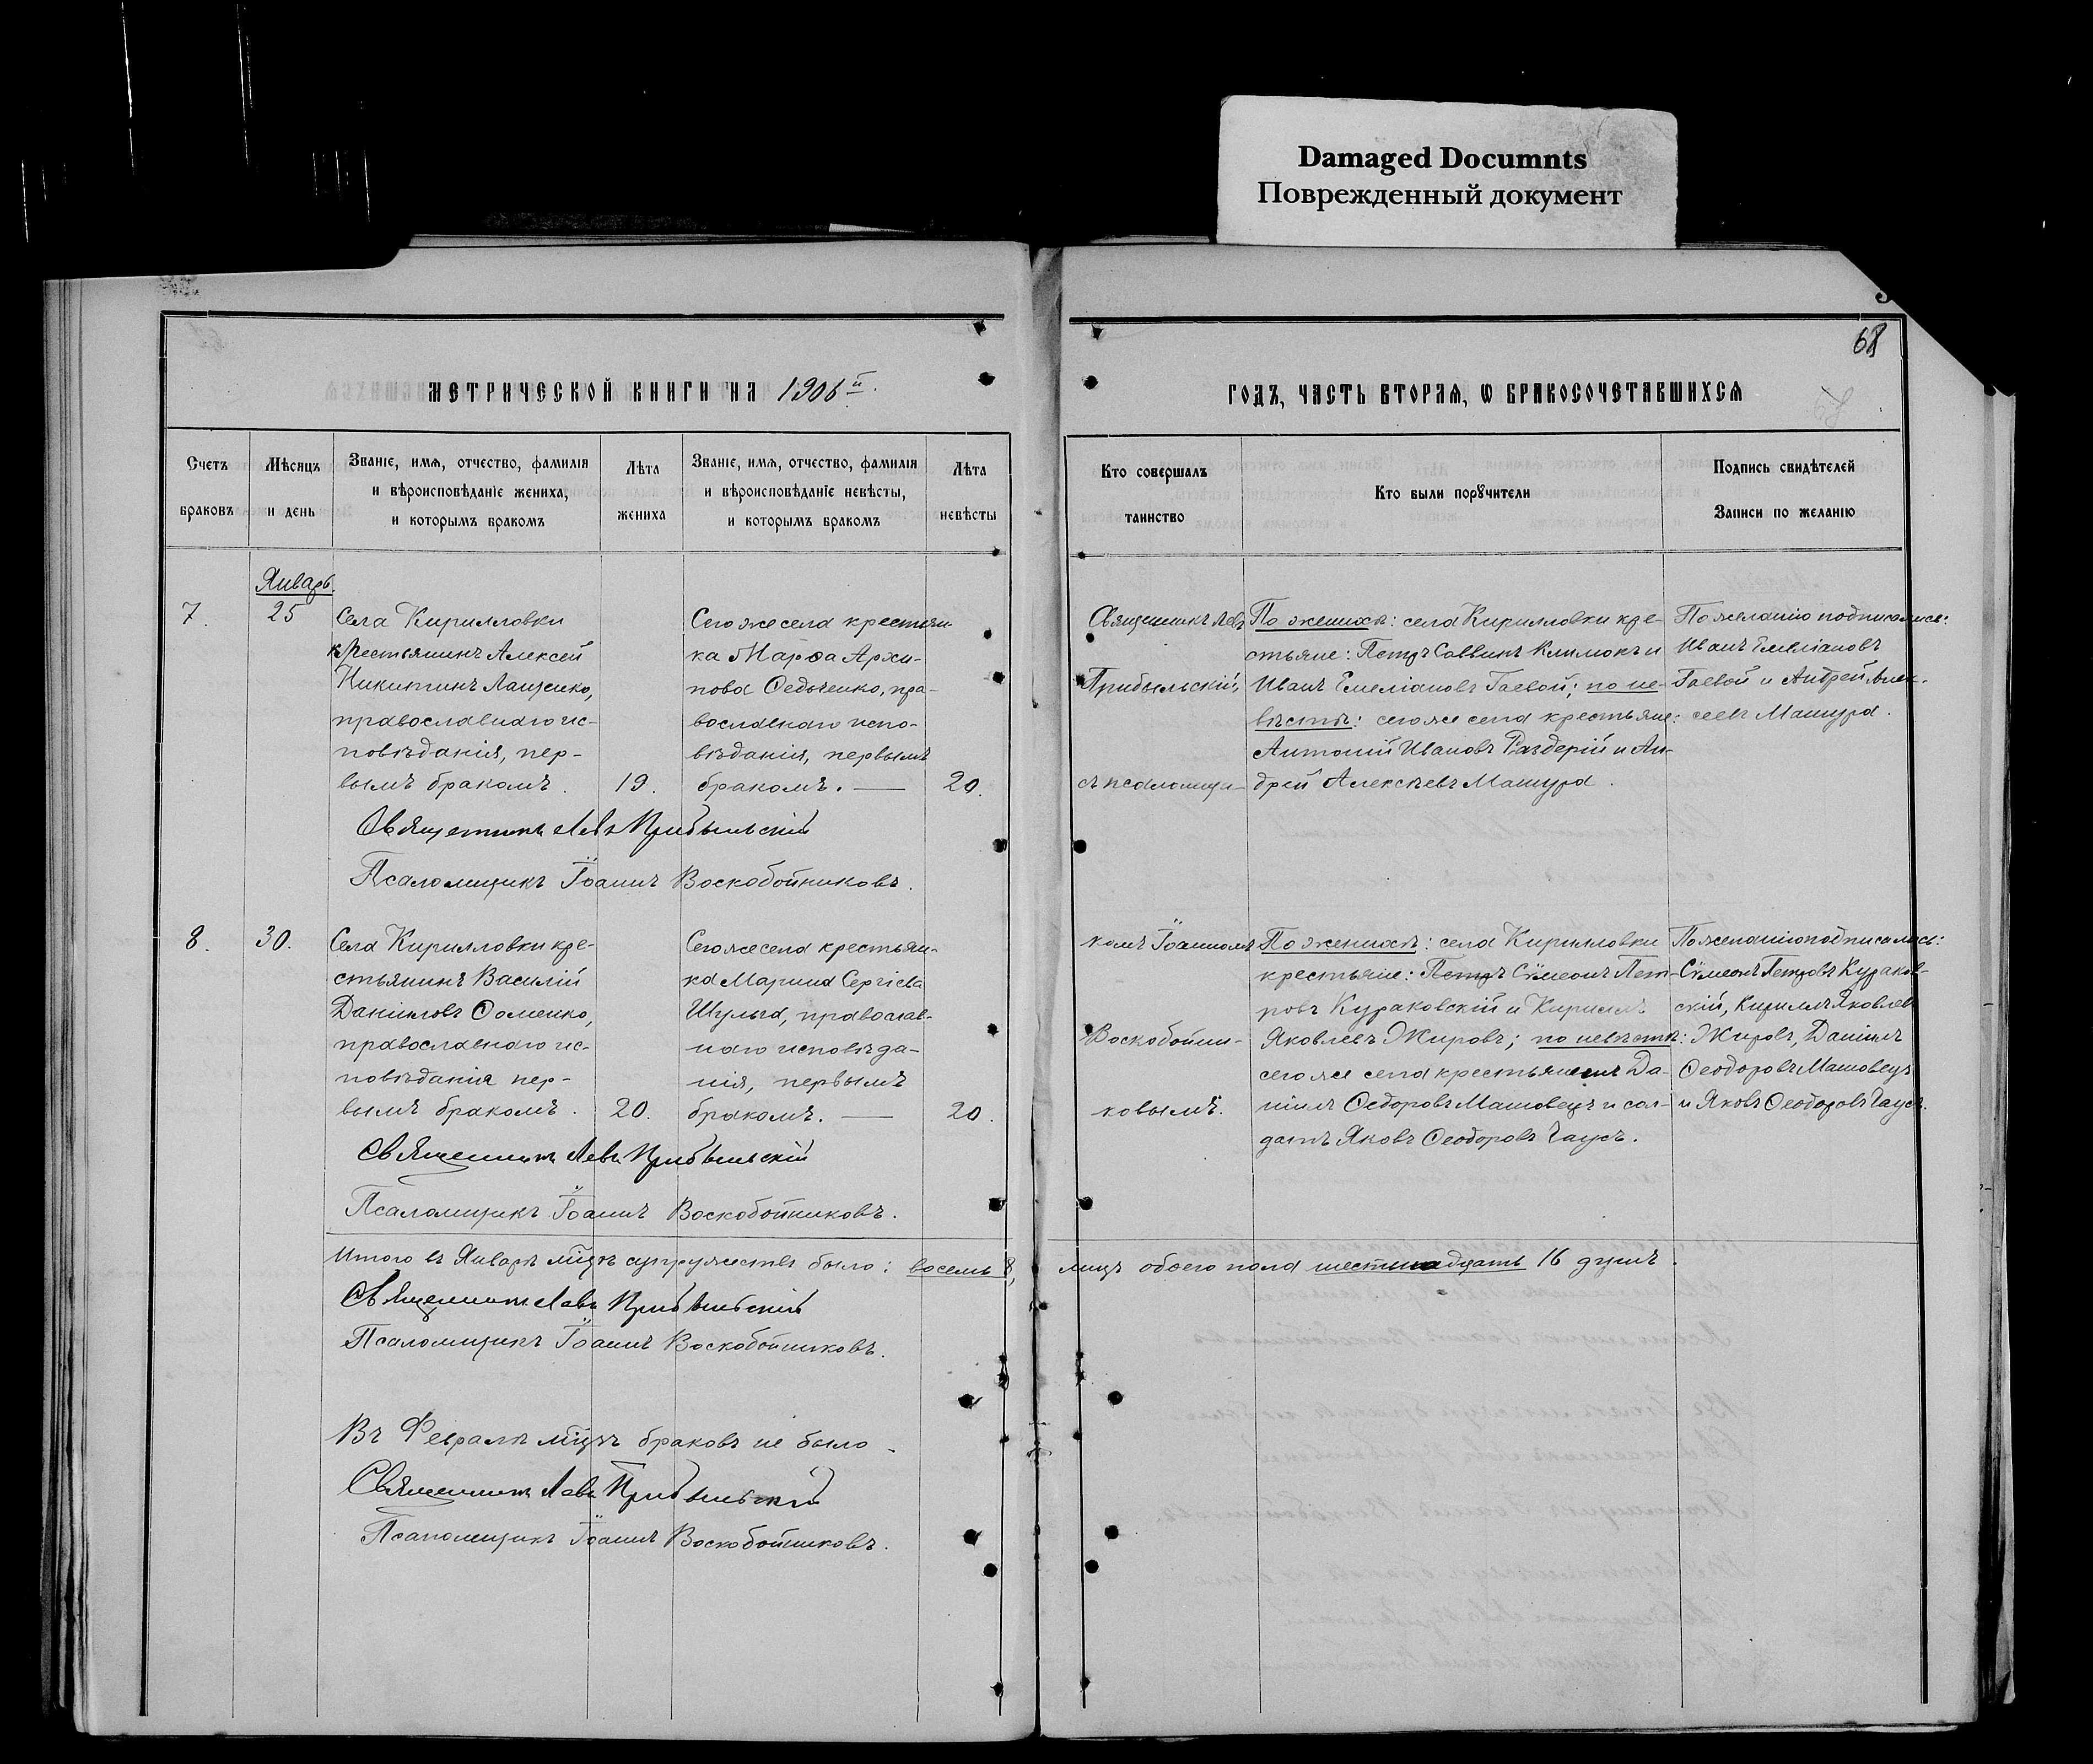 Damaged Documnts
Поврежденный документ
68
МЕТРИЧЕСКОЙ КНИГИ НА 1906 й.
ГОДЪ, ЧАСТЬ ВТОРАЯ, Ѡ БРАКОСОЧЕТАВШИХСѦ
Счетъ
браковъ
Мѣсяцъ
и день
Званіе, имѧ, отчество, фамилія
и вѣроисповѣданіе жениха,
и которымъ бракомъ
Лѣта
жениха
Званіе, имѧ, отчество, фамилія
и вѣроисповѣданіе невѣсты,
и которымъ бракомъ
Лѣта
невѣсты
Кто совершалъ
таинство
Кто были порꙋчители
Подпись свидѣтелей
записи по желанію
Январь.
7.
25
Села Кирилловки
крестьянинъ Алексей
Никитинъ Лащенко,
православнаго ис-
повѣданія, пер-
вымъ бракомъ.
19.
Сего же села крестьян-
ка Марѳа Архи-
пова Ѳедченко, пра-
вославнаго испо-
вѣданія, первымъ
бракомъ. —
20.
Священникъ Левъ
Прибыльскій,
съ псаломщи-
По женихѣ: села Кирилловки кре-
стьяне: Петръ Саввинъ Климокъ и
Иванъ Емеліановъ Гаевой; по не-
вѣстѣ: сего же села крестьяне:
Антоній Ивановъ Раздерій и Ан-
дрей Алексѣевъ Машура.
По желанію подписались:
Иванъ Емеліановъ
Гаевой и Андрей Алек-
сеевъ Машура.
Священникъ Левъ Прибыльскій
Псаломщикъ Іоаннъ Воскобойниковъ.
8.
30.
Села Кирилловки кре-
стьянинъ Василій
Даніиловъ Ѳоменко,
православнаго ис-
повѣданія пер-
вымъ бракомъ.
20.
Сего же села крестьян-
ка Марина Сергіева
Шульга, православ-
наго исповѣда-
нія, первымъ
бракомъ. —
20.
комъ Іоанномъ
Воскобойни-
ковымъ.
По женихѣ: села Кирилловки
крестьяне: Петръ Сѵмеонъ Пет-
ровъ Кураковскій и Кириллъ
Яковлевъ Жировъ; по невѣстѣ:
сего же села крестьянинъ Да-
ніилъ Ѳедоровъ Машовецъ и сол-
датъ Яковъ Ѳеодоровъ Чаусъ.
По желанію подписались:
Сѵмеонъ Петровъ Кураков-
скій, Кириллъ Яковлев
Жировъ, Даніилъ
Ѳеодоровъ Машовецъ
и Яковъ Ѳеодоровъ Чаусъ.
Священникъ Левъ Прибыльскій
Псаломщикъ Іоаннъ Воскобойниковъ.
Итого въ Январѣ мцѣ супружествъ было: восемь 8,
лицъ обоего пола шестнадцать 16 душъ.
Священникъ Левъ Прибыльскій
Псаломщикъ Іоаннъ Воскобойниковъ.
Въ Февралѣ мцѣ браковъ не было.
Священникъ Левъ Прибыльскій
Псаломщикъ Іоаннъ Воскобойниковъ.